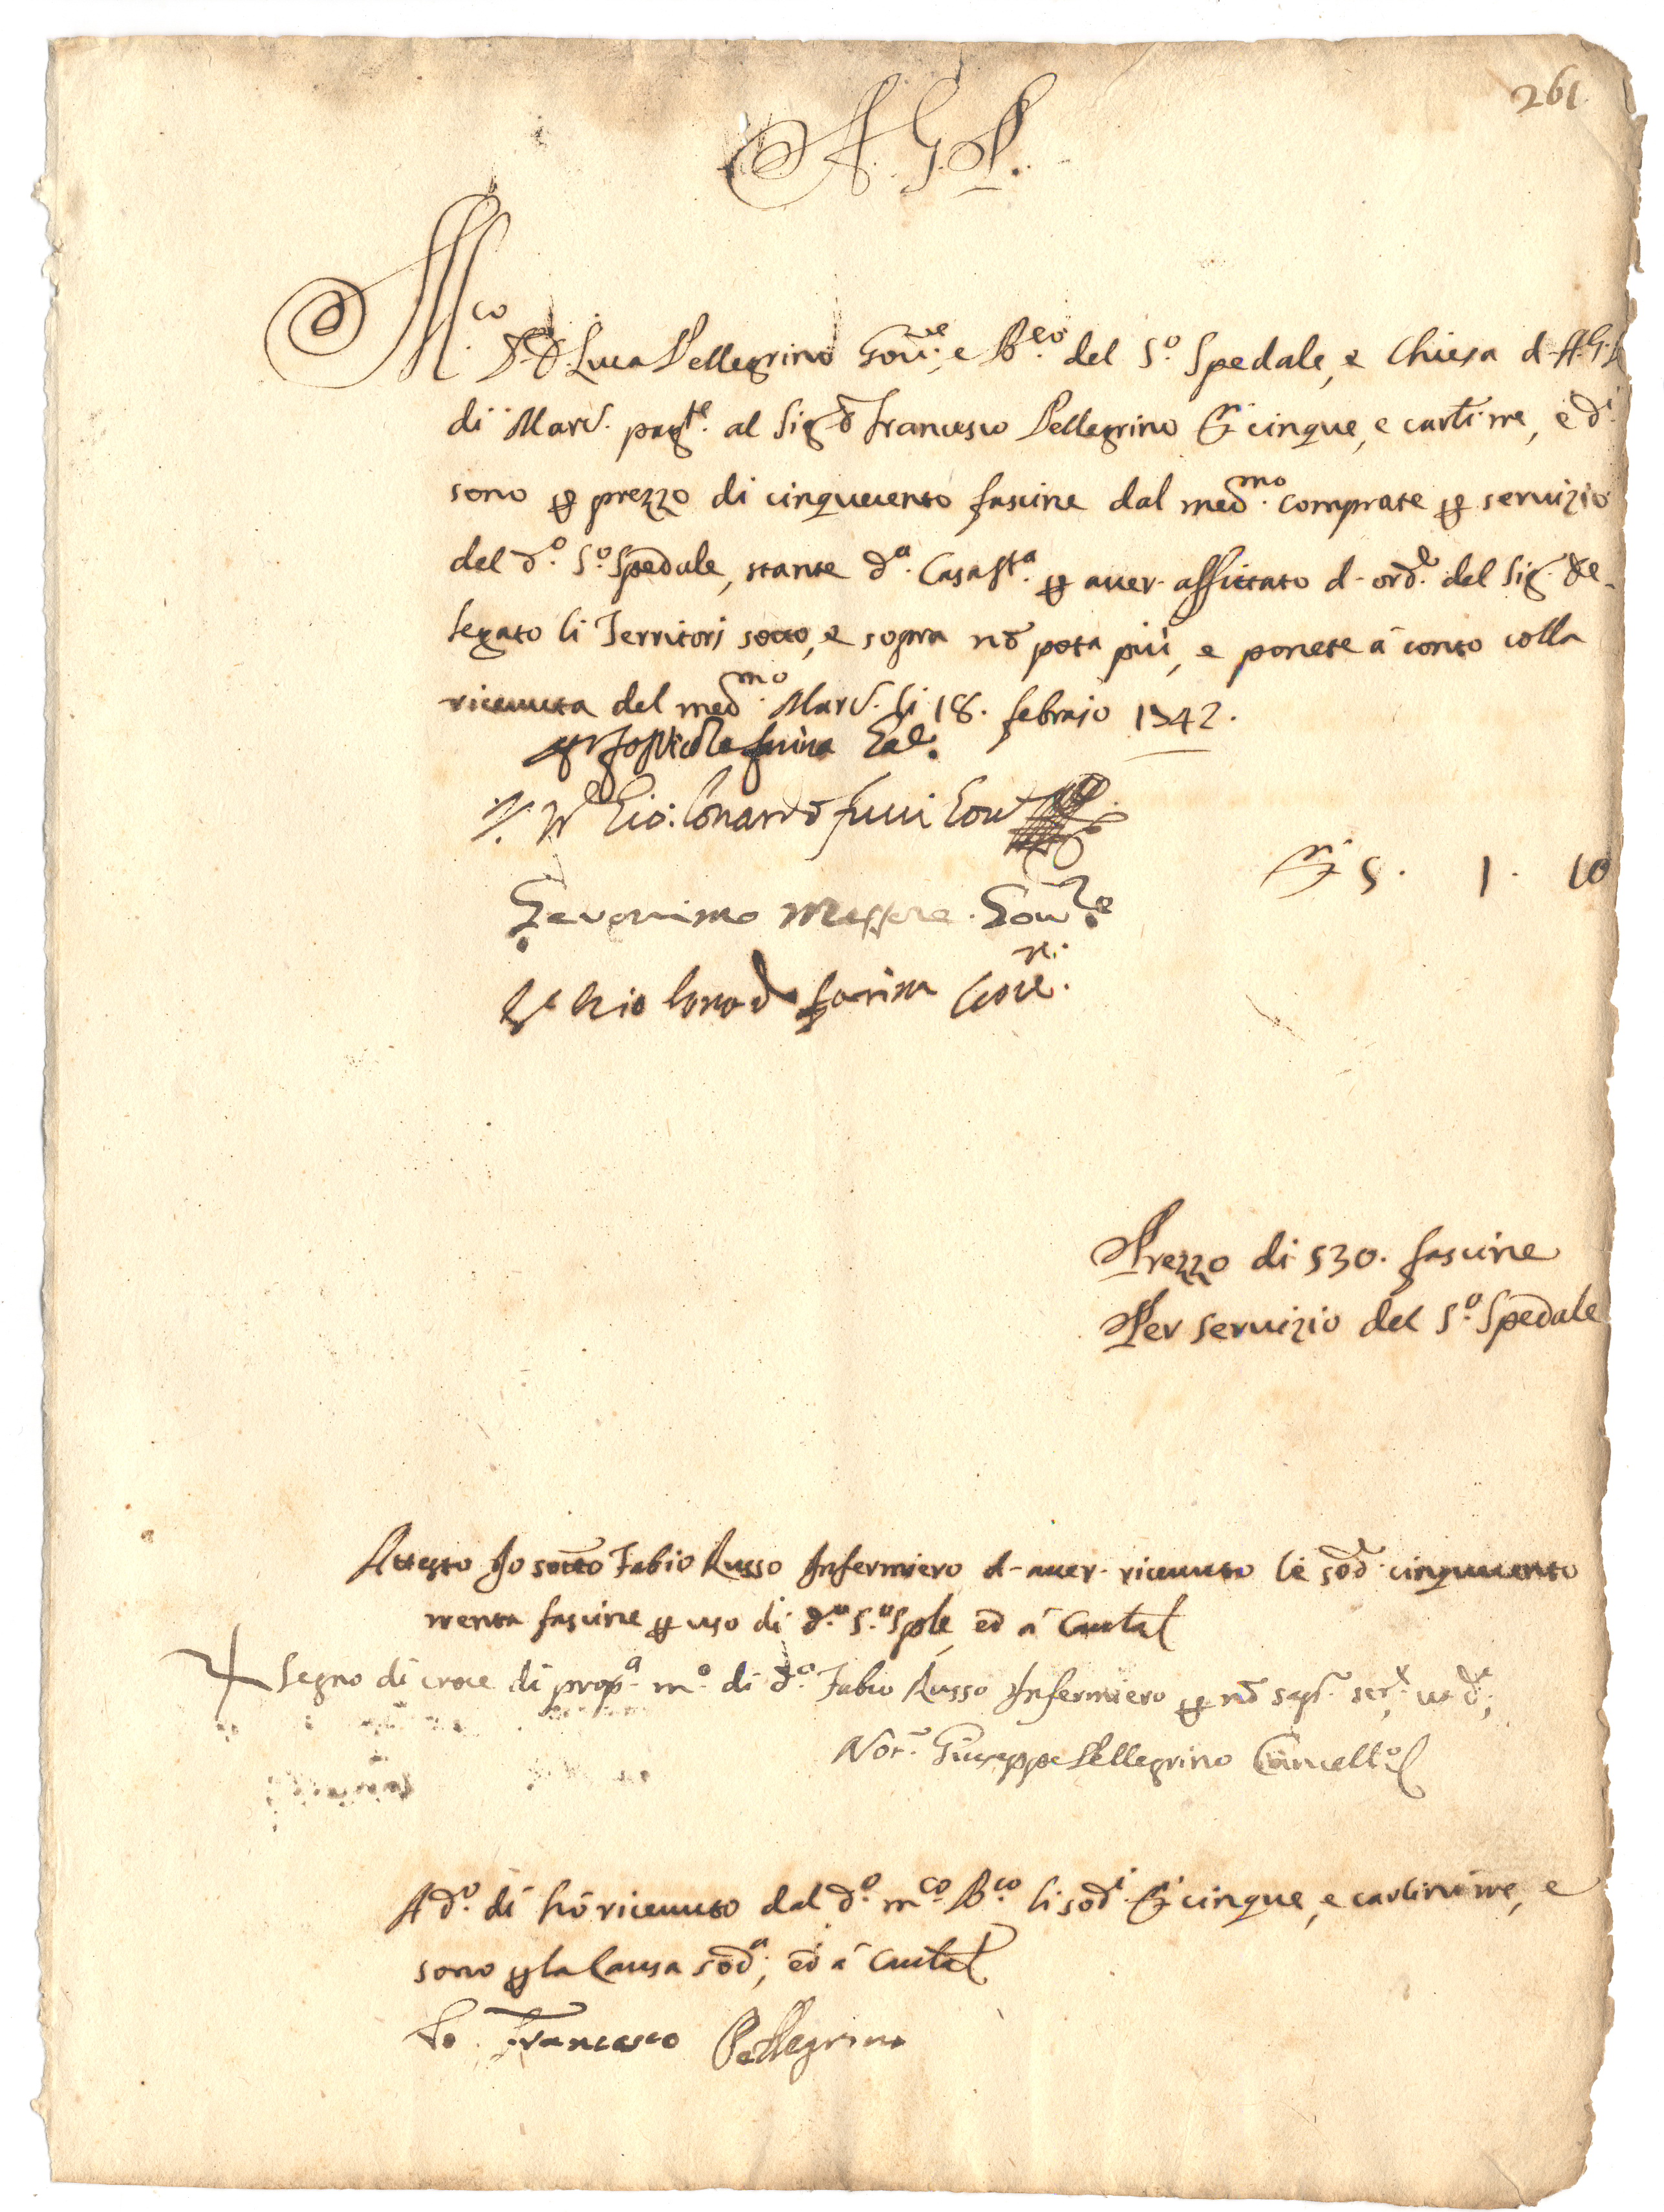 261
A. G. P.
M.co Dr. D. Luca Pellegrino Gov.re, e B.co del S.o Spedale, e Chiesa d. A. G. P.
di Marc. pag.te al Sig. D. Francesco Pellegrino D.ti cinque, e carl.ni tre, e d.i
sono p prezzo di cinquecento fascine dal med.mo comprate p servizio
del d.o S.o Spedale, stante d.a Casa S.ta p aver affittato d. ord.e del Sig. De-
legato li Territorj sotto, e sopra nō pota più, e ponete á conto colla
ricevuta del med.mo Marc. li 18. febrajo 1742.
Jo Nicola farina
Gio: Lonardo
D.ti 5. 1. 10
Geronimo Messere Gov.re
Gio Lonardo farina
Prezzo di 530. fascine
Per servizio del S.o Spedale
Attesto Jo sotto Fabio Russo Infermiero d. aver ricevuto le sod. cinquecento
trenta fascine p uso di d.o S.o Sple, ed á Cautal
Segno di croce di prop.a m.o di d.o Fabio Russo Infermiero p nō sap.r scr.e ut d.r,
Not.r Giuseppe Pellegrino Cancell.o
A d.o dí hó ricevuto dal d.o m.co B.co li sod.i D.ti cinque, e carlini tre, e
sono p la Causa sod.a, ed á Cautal
Io Francesco Pellegrino